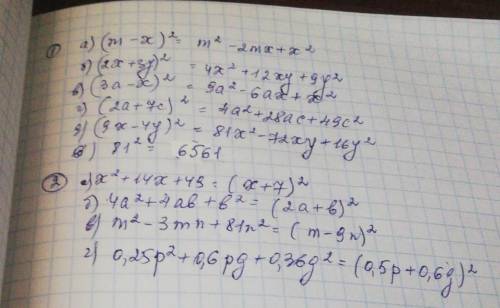 ① а) (m - x)² = m² - 2mx + x²
б) (2x + 3y)² = 4x² + 12xy + 9y²
в) (3a - x)² = 9a² - 6ax + x²
г) (2a + 7c)² = 4a² + 28ac + 49c²
д) (9x - 4y)² = 81x² - 72xy + 16y²
е) 81² = 6561
② а) x² + 14x + 49 = (x + 7)²
б) 4a² + 4ab + b² = (2a + b)²
в) m² - 3mn + 81n² = (m - 9n)²
г) 0,25p² + 0,6pg + 0,36g² = (0,5p + 0,6g)²